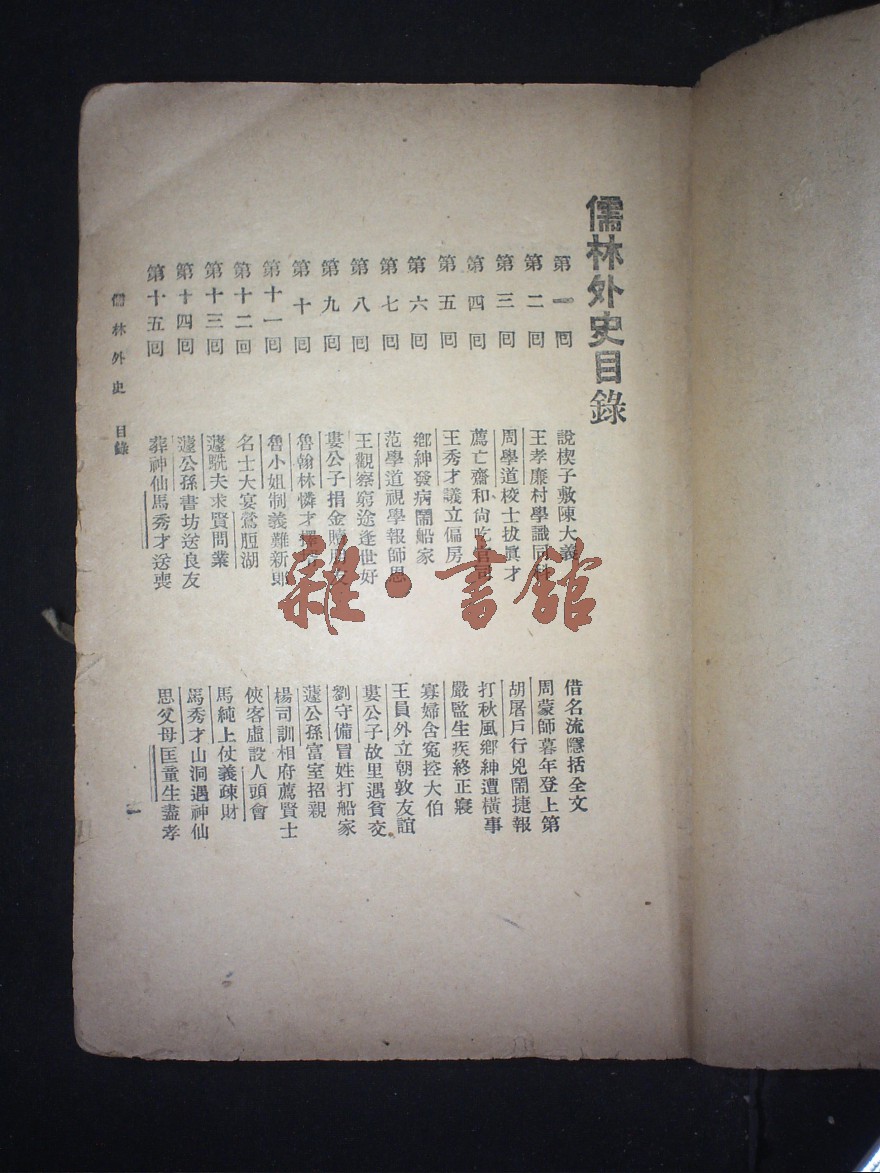 儒林外史目錄
第一回 說楔子敷陳大義 借名流隱括全文
第二回 王孝廉村學識同科 周蒙師暮年登上第
第三回 周學道校士拔眞才 胡屠戶行兇鬧捷報
第四回 薦亡齋和尙吃官司 打秋風鄉紳遭橫事
第五回 王秀才議立偏房 嚴監生疾終正寢
第六回 鄉紳發病鬧船家 寡婦含冤控大伯
第七回 范學道視學報師恩 王員外立朝敦友誼
第八回 王觀察窮途逢世好 婁公子故里遇貧交
第九回 婁公子捐金贖朋友 劉守備冒姓打船家
第十回 魯翰林憐才擇壻 蘧公孫富室招親
第十一回 魯小姐制義難新郎 楊司訓相府薦賢士
第十二回 名士大宴鶯脰湖 俠客虛設人頭會
第十三回 蘧駪夫求賢問業 馬純上仗義疎財
第十四回 蘧公孫書坊送良友 馬秀才山洞遇神仙
第十五回 葬神仙馬秀才送喪 思父母匡童生盡孝
儒林外史 目錄
一
雜·書館